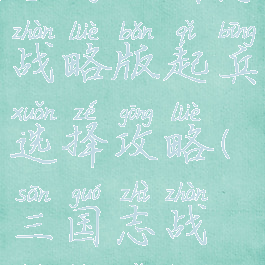 zhàn lüè bǎn qǐ bīng
战略版起兵
xuǎn zé gōng lüè
选择攻略(
sān guó zhì zhàn
三国志战